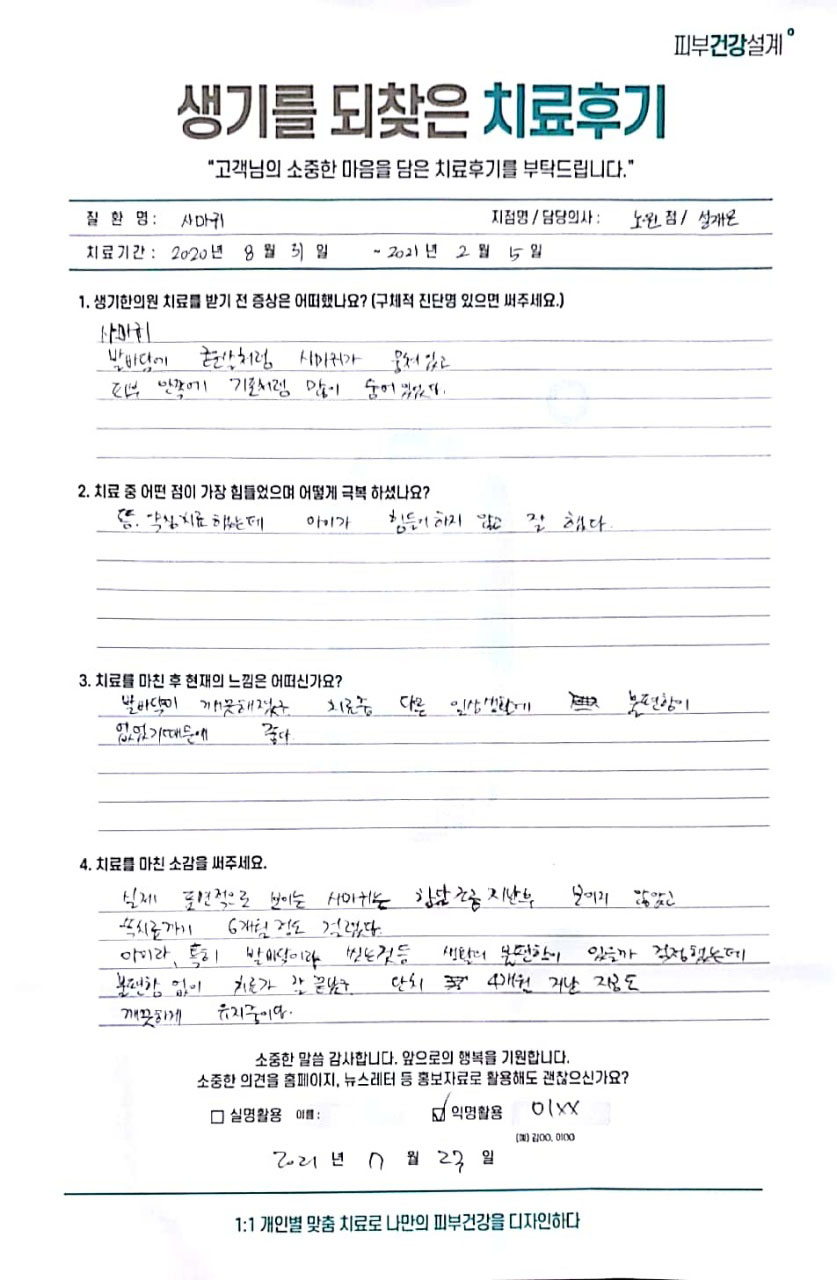 피부건강설계
생기를 되찾은 치료후기
"고객님의 소중한 마음을 담은 치료후기를 부탁드립니다."
질 환 명 : 사마귀 지점명 / 담당의사 : 노원 점 / 설재은
치료기간 : 2020 년 8 월 31 일 ~ 2021 년 2 월 5 일
1. 생기한의원 치료를 받기 전 증상은 어떠했나요? (구체적 진단명 있으면 써주세요.)
사마귀
발바닥에 굳은살처럼 사마귀가 뭉쳐있고
피부 안쪽에 기둥처럼 많이 숨어있었다.
2. 치료 중 어떤 점이 가장 힘들었으며 어떻게 극복 하셨나요?
뜸, 약침치료 했는데 아이가 힘들어하지 않고 잘 했다.
3. 치료를 마친 후 현재의 느낌은 어떠신가요?
발바닥이 깨끗해졌고 치료중 다른 일상생활에 불편함이
없었기때문에 좋다
4. 치료를 마친 소감을 써주세요.
실제 표면적으로 보이는 사마귀는 한달 조금 지난후 보이지 않았고
속치료까지 6개월 정도 걸렸다.
아이라, 특히 발바닥이라 씻는것등 생활의 불편함이 있을까 걱정했는데
불편함 없이 치료가 잘 끝났고 완치 4개월 지난 지금도
깨끗하게 유지중이다.
소중한 말씀 감사합니다. 앞으로의 행복을 기원합니다.
소중한 의견을 홈페이지, 뉴스레터 등 홍보자료로 활용해도 괜찮으신가요?
실명활용 이름 : 익명활용 이XX
(예) 김OO, 이OO
2021 년 7 월 23 일
1:1 개인별 맞춤 치료로 나만의 피부건강을 디자인하다